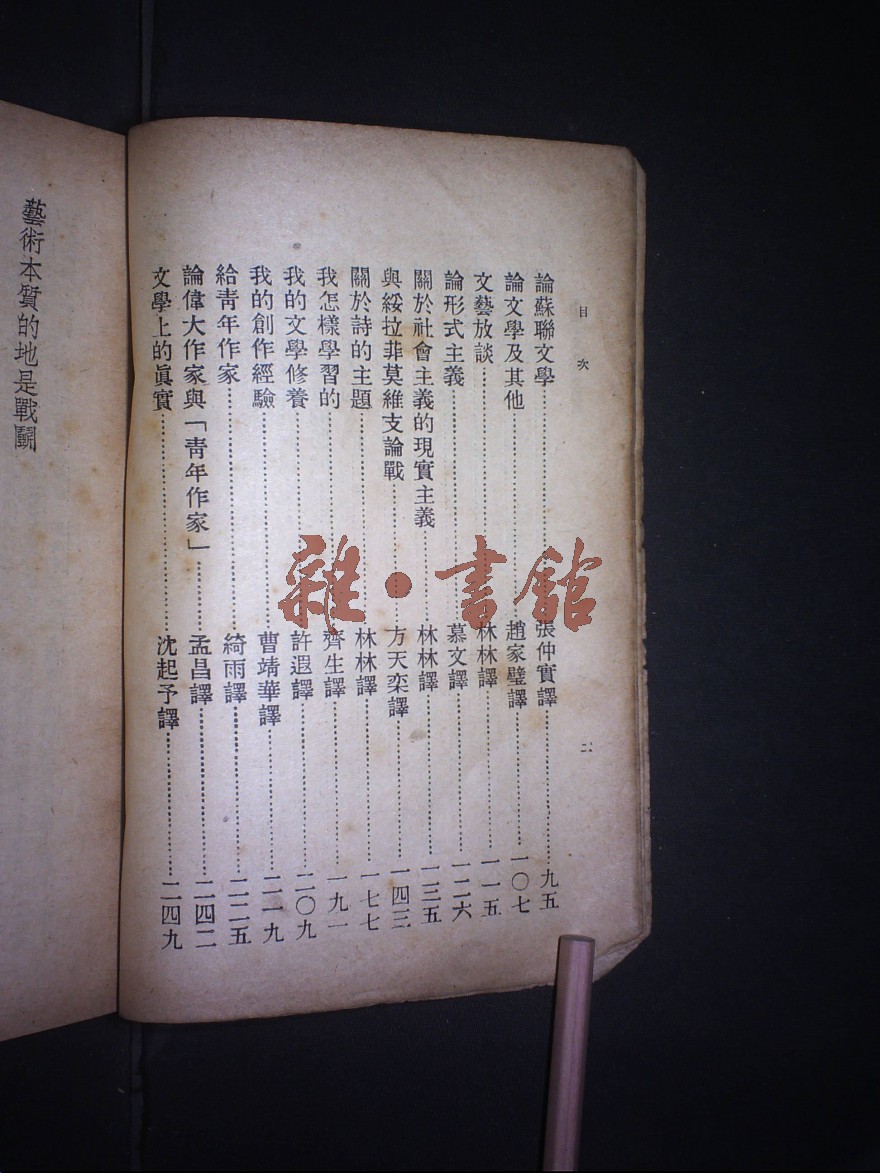 目次
二
論蘇聯文學……張仲實譯……九五
論文學及其他……趙家璧譯……一〇七
文藝放談……林林譯……一一五
論形式主義……慕文譯……一二六
關於社會主義的現實主義……林林譯……一三五
與綏拉菲莫維支論戰……方天栾譯……一四三
關於詩的主題……林林譯……一七七
我怎樣學習的……齊生譯……一九一
我的文學修養……許遐譯……二〇九
我的創作經驗……曹靖華譯……二一九
給青年作家……綺雨譯……二二五
論偉大作家與「青年作家」……孟昌譯……二四二
文學上的眞實……沈起予譯……二四九
藝術本質的地是戰鬭
雜·書館